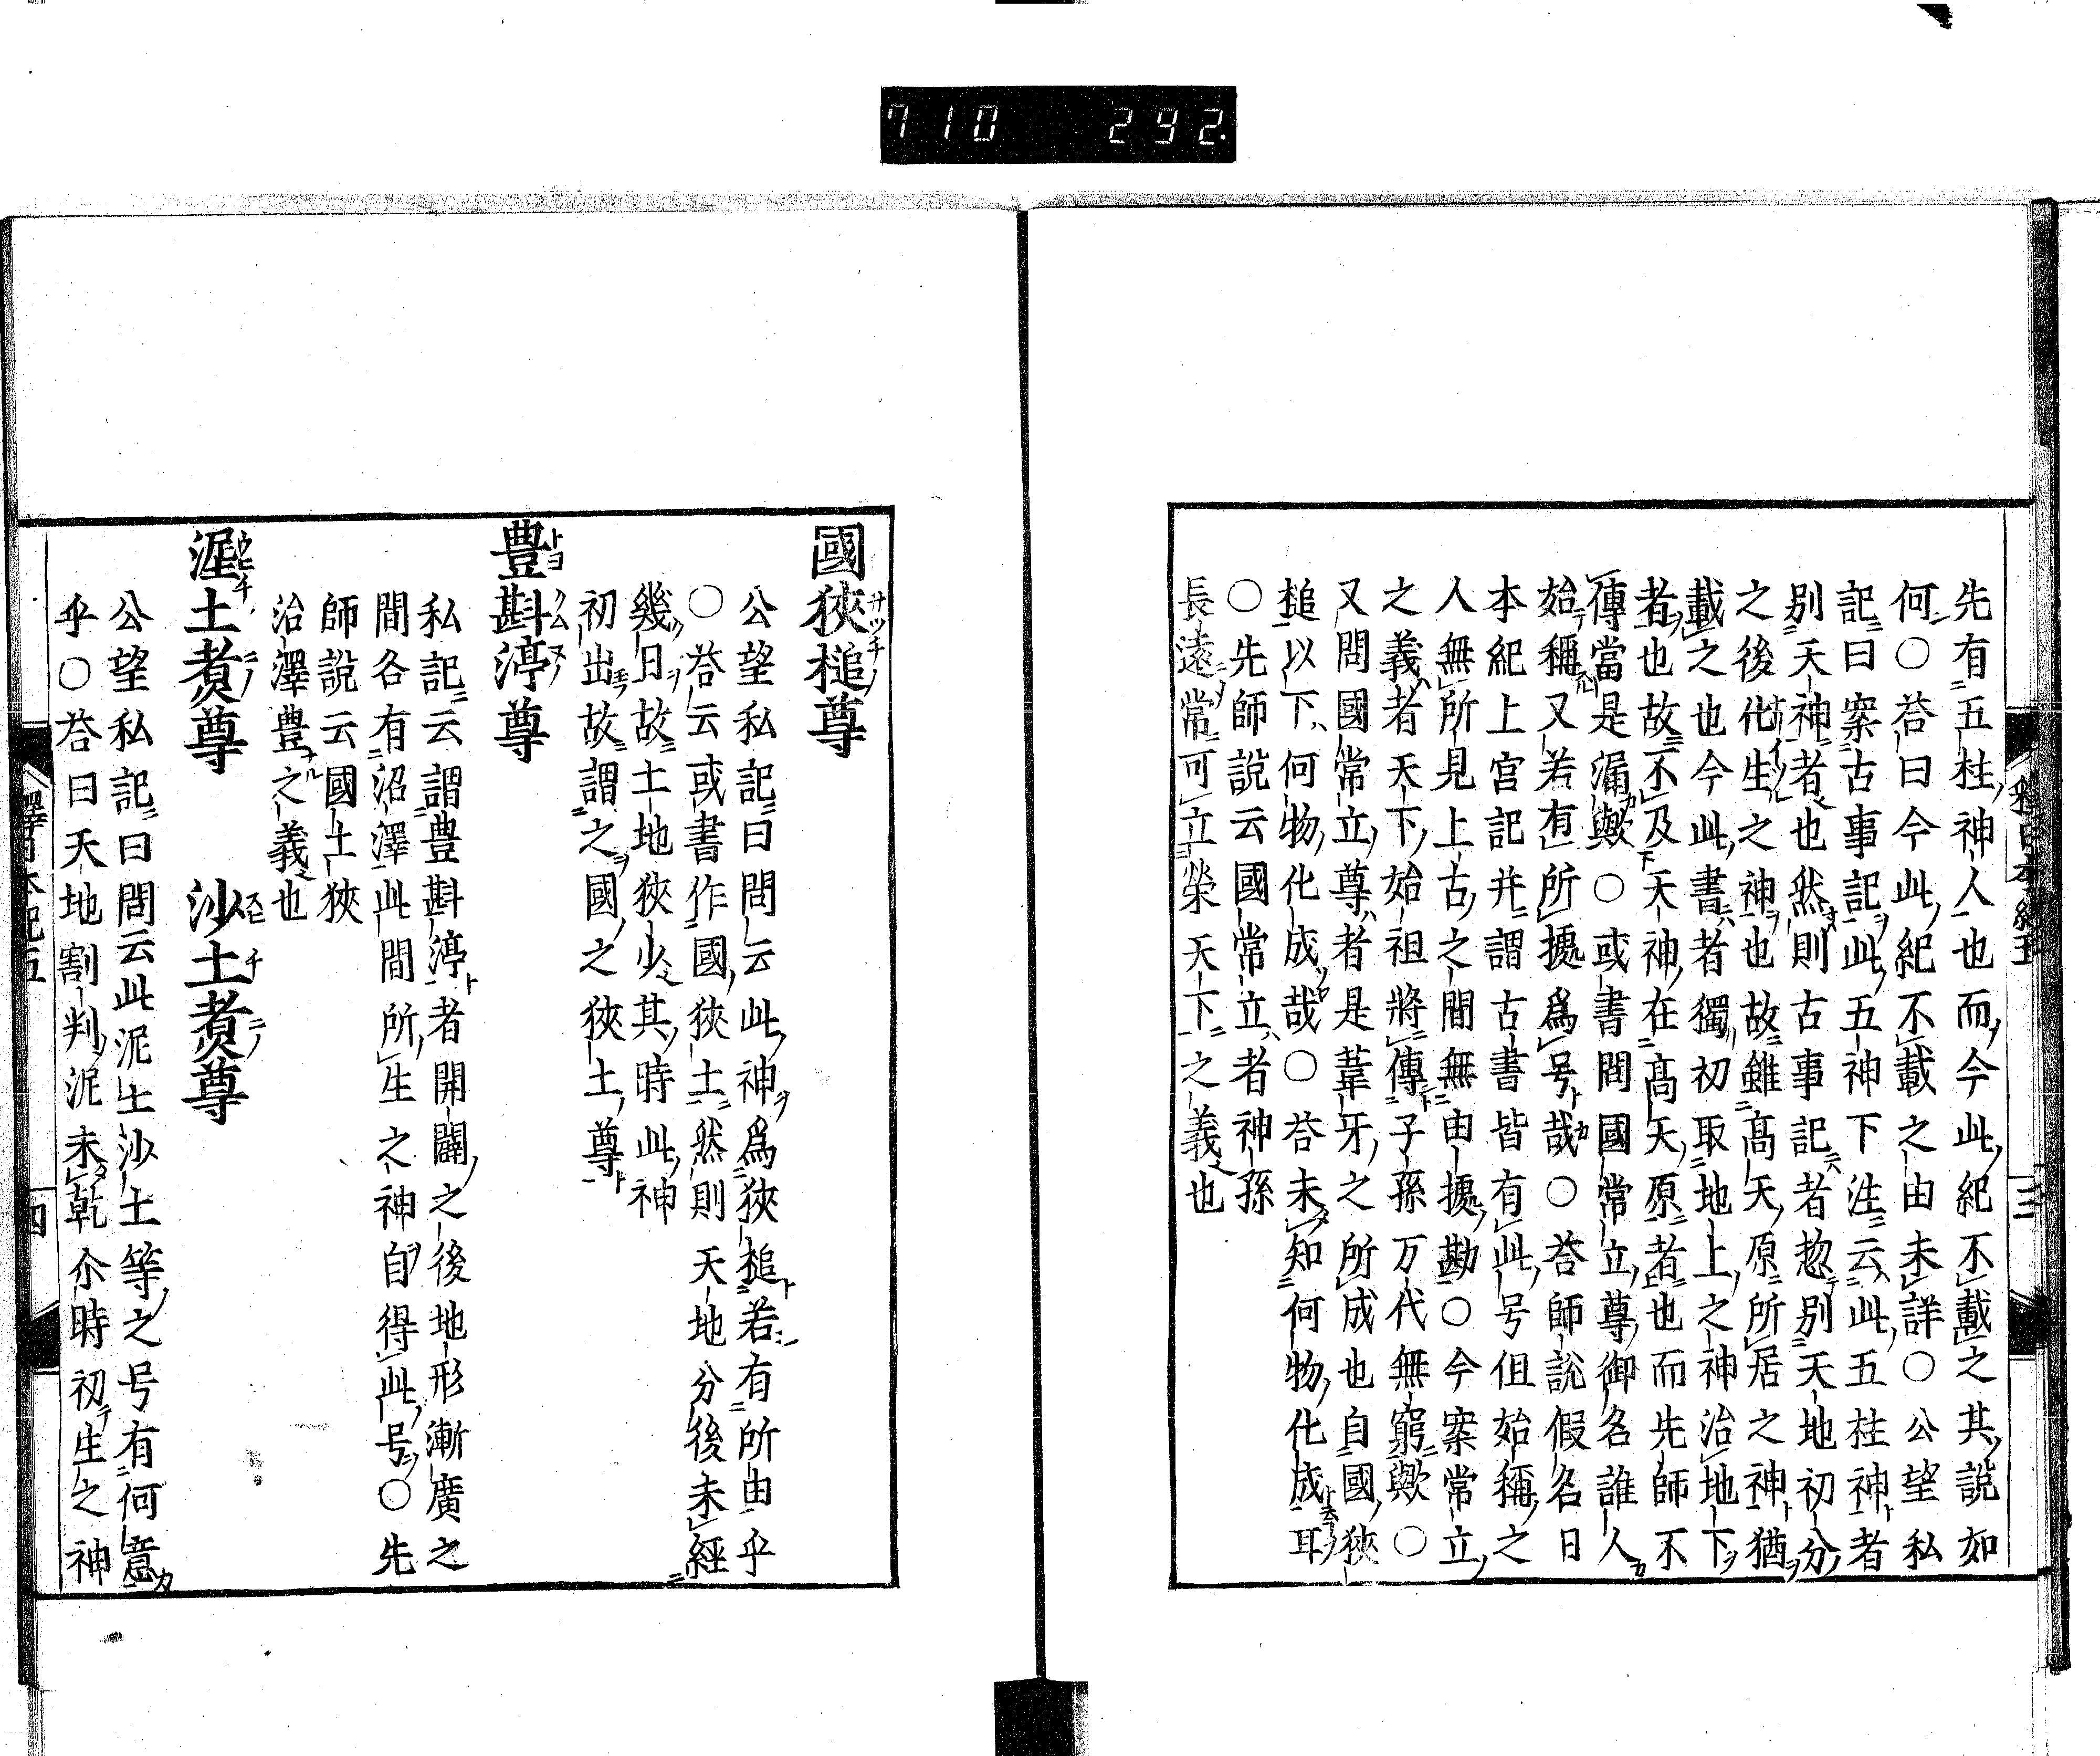 710 292.
先有五柱神人也而今此紀不載之其説如
何○荅曰今此紀不載之由未詳○公望私
記曰案古事記此五神下注云此五柱神者
別天神者也然則古事記者惣別天地初分
之後化生之神也故雖髙天原所居之神猶
載之也今此書者獨初取地上之神治地下
者也故不及天神在髙天原者也而先師不
傳當是漏歟○或書問國常立尊御名誰人
始稱又若有所據爲号哉○荅師説假名日
本紀上宮記并謂古書皆有此号但始稱之
人無所見上古之間無由據勘○今案常立
之義者天下始祖將傳子孫万代無窮歟○
又問國常立尊者是葦牙之所成也自國狹
槌以下何物化成哉○荅未知何物化成耳
○先師説云國常立者神孫
長遠常可立榮天下之義也
國狹槌尊
公望私記曰問云此神爲狹槌若有所由乎
○荅云或書作國狹土然則天地分後未經
幾日故土地狹少其時此神
初出故謂之國之狹土尊
豊斟渟尊
私記云謂豊斟渟者開闢之後地形漸廣之
間各有沼澤此間所生之神自得此号○先
師説云國土狹
治澤豊之義也
泥土煑尊 沙土煑尊
公望私記曰問云此泥土沙土等之号有何意
乎○荅曰天地割判泥未乾尒時初生之神